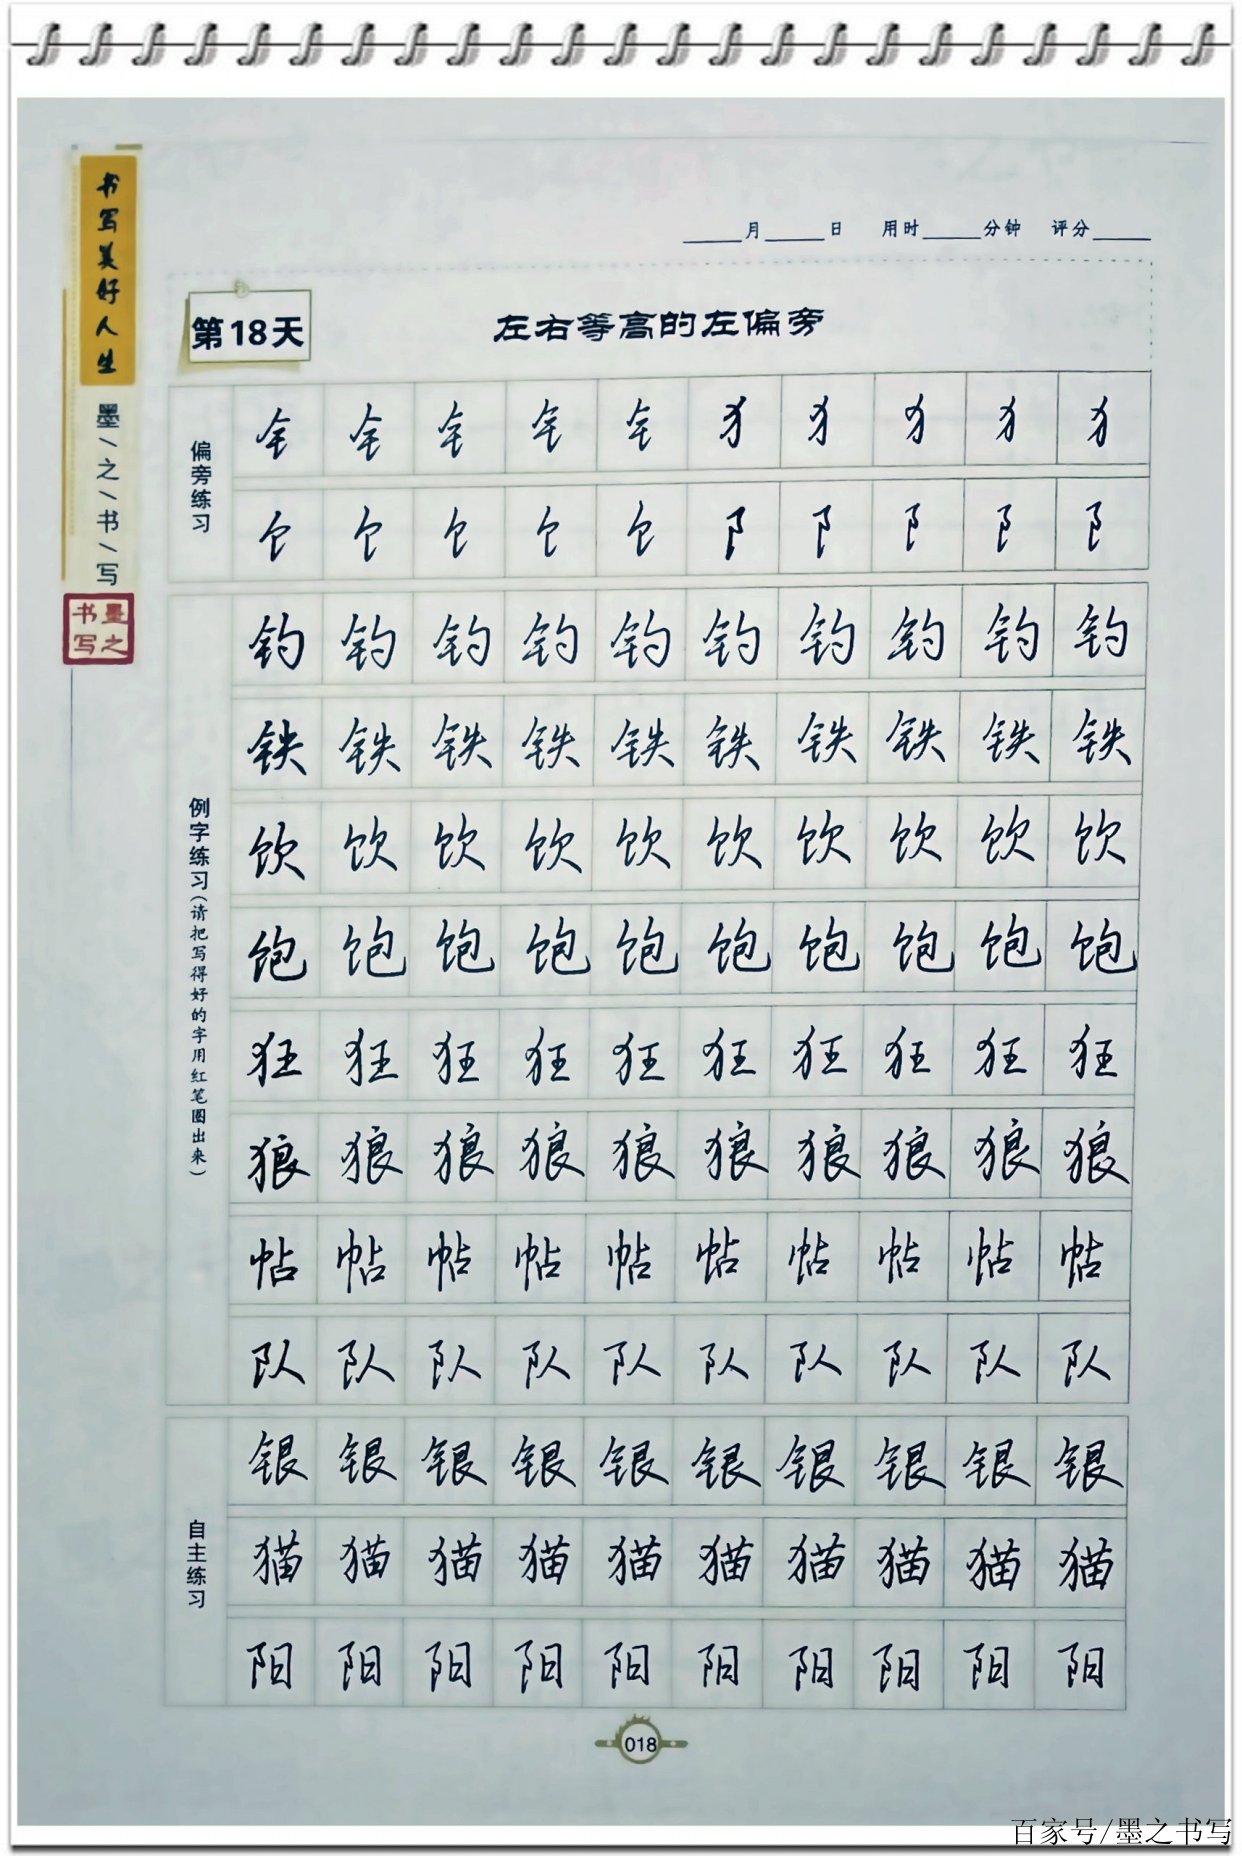 书写美好人生
墨\之\书\写
墨之书写
____月____日 用时____分钟 评分____
第18天
左右等高的左偏旁
偏旁练习
钅 钅 钅 钅 钅 犭 犭 犭 犭 犭
饣 饣 饣 饣 饣 阝 阝 阝 阝 阝
例字练习(请把写得好的字用红笔圈出来)
钓 钓 钓 钓 钓 钓 钓 钓 钓 钓
铁 铁 铁 铁 铁 铁 铁 铁 铁 铁
饮 饮 饮 饮 饮 饮 饮 饮 饮 饮
饱 饱 饱 饱 饱 饱 饱 饱 饱 饱
狂 狂 狂 狂 狂 狂 狂 狂 狂 狂
狼 狼 狼 狼 狼 狼 狼 狼 狼 狼
帖 帖 帖 帖 帖 帖 帖 帖 帖 帖
队 队 队 队 队 队 队 队 队 队
自主练习
银 银 银 银 银 银 银 银 银 银
猫 猫 猫 猫 猫 猫 猫 猫 猫 猫
阳 阳 阳 阳 阳 阳 阳 阳 阳 阳
018
百家号/墨之书写